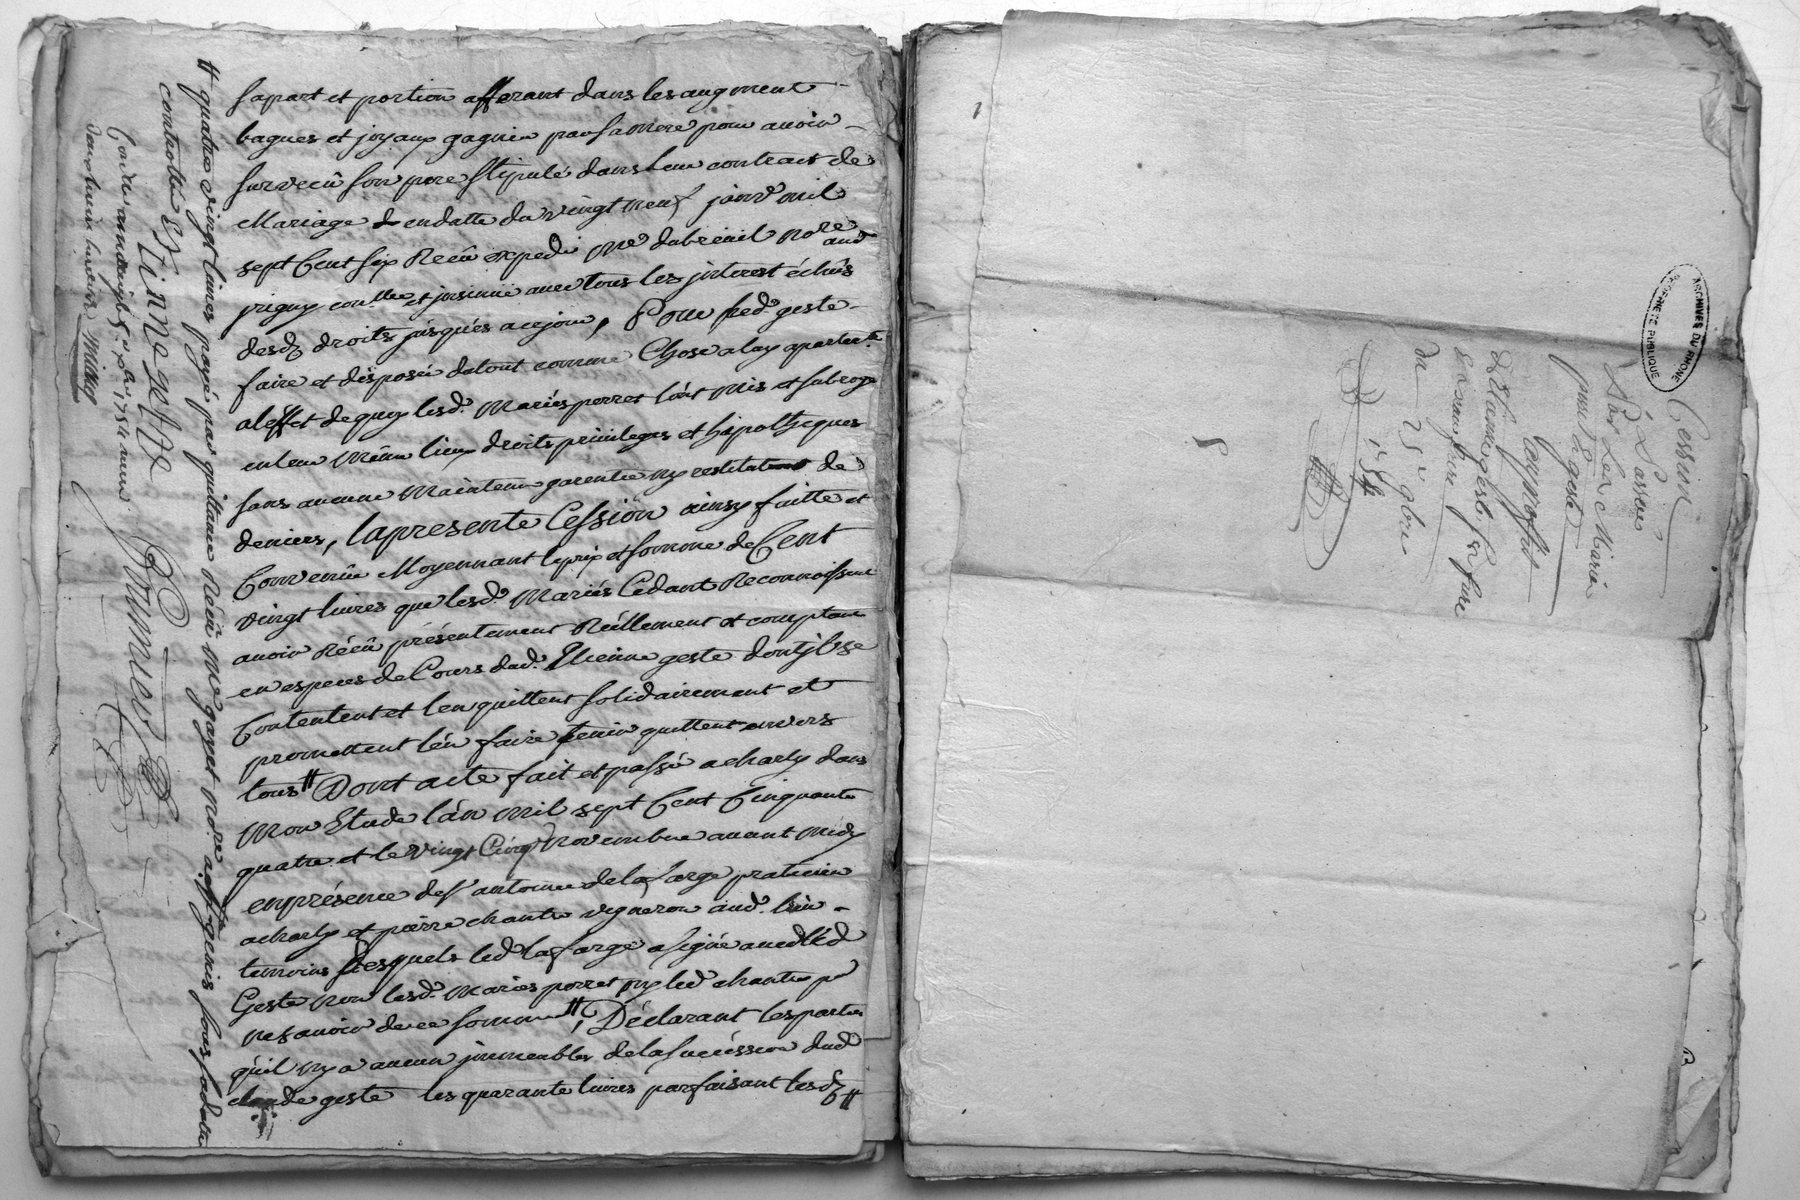 sa part et portion afferant dans les augment
bagues et joyaux gagnée par sa mere pour avoir
survecû son pere stipulé dans leur contract de
Mariage & en datte du vingt neuf janv.^r mil
sept Cent six Recû expedié M^e dubreuil no^re
aud
jrigny con^llée et jnsinué avec tous les jnterest échûs
desd. droits jusques a ce jour, Pour led. geste
faire et disposer du tout comme Chose a luy apartent^e
a l'effet de quoy lesd. Mariés perret l'ont mis et subrogé
en leur même lieux droits privileges et hipotheques
sans aucune Maintenue garentie ny restitution de
deniers, la presente Cession ainsy faitte et
Convenûe Moyennant le prix et somme de Cent
vingt livres que lesd. Mariés Cedant Reconnoissent
avoir Récû présentement Réellement et comptant
en especes de Cours dud. Etienne geste dont jls se
Contentent et l'en quittent solidairement et
promettent l'en faire tenir quitte envers
tous # Dont acte fait et passé a charly dans
Mon Etude l'an Mil sept Cent Cinquante
quatre et le vingt Cinq Novembre avant midy
en présence de s^r antoine delafarge praticien
a charly et pierre chantre vigneron aud. lieu
temoins desquels led lafarge a signé avec led
Geste non lesd. Mariés perret ny led chantre p^r
ne sçavoir de ce sommé #, Déclarant les parties
qu'il n'y a aucun jmmeubles de la succession dud
claude geste les quarante livres parfaisant lesd #
# quatre vingt livres payé par quittance Recû M^e gayet no^re a st genis sous sa datte
controllée
Etinne geste
Con^llé a 5^e x^bre 1754 reçu
douze sols
Cession
Les Mariés
pour E. geste
d'Etienne geste son frere
Du 25^e 9bre
1754
ARCHIVES DU RHONE
PROPRIETE PUBLIQUE